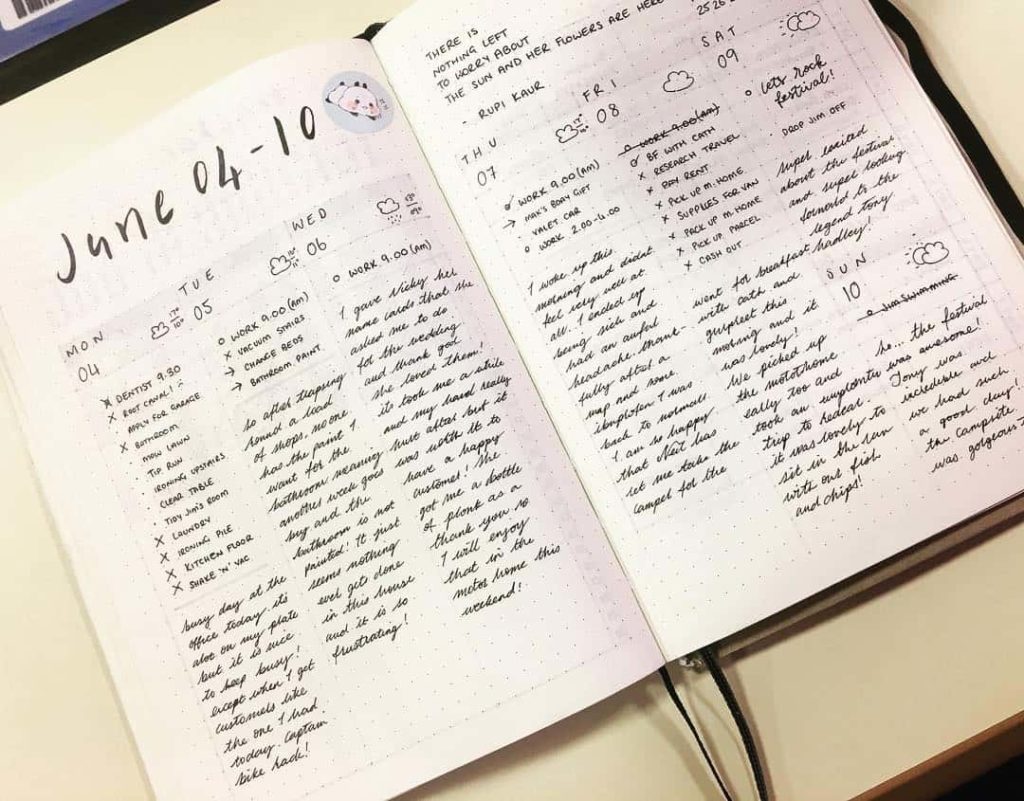 June 04-10
MON
04
17°
10°
DENTIST 9.30
ROOT CANAL!
APPLY FOR GARAGE
BATHROOM
MOW LAWN
TIP RUN
IRONING UPSTAIRS
CLEAR TABLE
TIDY JIM'S ROOM
LAUNDRY
IRONING PILE
KITCHEN FLOOR
SHAKE 'N' VAC
busy day at the
office today. its
alot on my plate
but it is nice
to keep busy!
except when I get
customers like
the one I had
today. Captain
bike rack!
TUE
05
WORK 9.00 (AM)
VACUUM STAIRS
CHANGE BEDS
BATHROOM PAINT
so after traipsing
round a load
of shops, no one
has the paint I
want for the
bathroom meaning
another week goes
by and the
bathroom is not
painted! It just
seems nothing
ever get done
in this house
and it is so
frustrating!
WED
06
WORK 9.00 (AM)
I gave Vicky her
name cards that she
asked me to do
for the wedding
and thank god
she loved them!
its took me a while
and my hand really
hurt after but it
was worth it to
have a happy
customer! She
got me a bottle
of plonk as a
thank you so
I will enjoy
that in the
motor home this
weekend!
THERE IS
NOTHING LEFT
TO WORRY ABOUT
THE SUN AND HER FLOWERS ARE HERE
- RUPI KAUR
25 26
THU
07
17°
WORK 9.00 (AM)
MAX'S BDAY GIFT
VALET CAR
WORK 2.00-6.00
I woke up this
morning and didnt
feel very well at
all. I ended up
being sick and
had an awful
headache. thank-
fully after a
nap and some
ibuprofen I was
back to normal!
I am so happy
that Neil has
let me take the
camper for the
FRI
08
WORK 9.00 (AM)
BF WITH CATH
RESEARCH TRAVEL
PAY RENT
PICK UP M. HOME
SUPPLIES FOR VAN
PACK UP M. HOME
PICK UP PARCEL
CASH OUT
went for breakfast
with cath and
gurpreet this
morning and it
was lovely!
We picked up
the motorhome
early too and
took an
trip to
it was lovely to
sit in the sun
with our fish
and chips!
SAT
09
lets rock
festival!
DROP JIM OFF
super excited
about the festival
and super looking
forward to the
legend tony
hadley!
SUN
10
JIM SWIMMING
so... the festival
was awesome!
Tony was
incredible and
we had such
a good day!
the campsite
was gorgeous